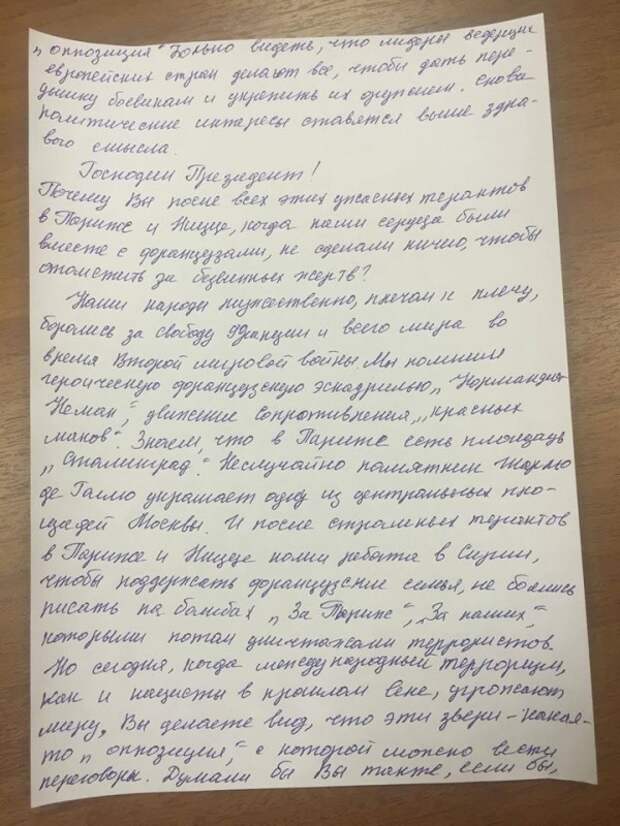 „оппозиция“. Больно видеть, что лидеры ведущих
европейских стран делают все, чтобы дать пере-
дышку боевикам и укрепить их оружием. Снова
политические интересы ставятся выше здра-
вого смысла.
Господин Президент!
Почему Вы после всех этих ужасных терактов
в Париже и Ницце, когда наши сердца были
вместе с французами, не сделали ничего, чтобы
отомстить за безвинных жертв?
Наши народы мужественно, плечом к плечу,
боролись за свободу Франции и всего мира во
время Второй мировой войны. Мы помним
героическую французскую эскадрилью „Нормандия-
Неман“, движение Сопротивления, „красных
маков“. Знаем, что в Париже есть площадь
„Сталинград“. Неслучайно памятник Шарлю
де Голлю украшает одну из центральных пло-
щадей Москвы. И после страшных терактов
в Париже и Ницце наши ребята в Сирии,
чтобы поддержать французские семьи, не боялись
писать на бомбах „За Париж“, „За наших“,
которыми потом уничтожали террористов.
Но сегодня, когда международный терроризм,
как и нацисты в прошлом веке, угрожают
миру, Вы делаете вид, что эти звери – какая-
то „оппозиция“, с которой можно вести
переговоры. Думали бы Вы также, если бы,